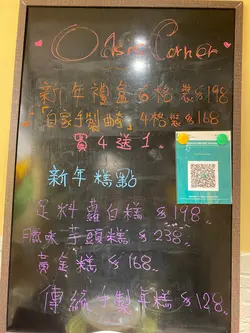 Corner
新年禮盒6格裝$198
「自家手製曲奇」4格裝$168
買4送1
新年糕點
足料蘿白糕 $198
臘味芋頭糕 $238
黃金糕 $168
傳統手製年糕 $128